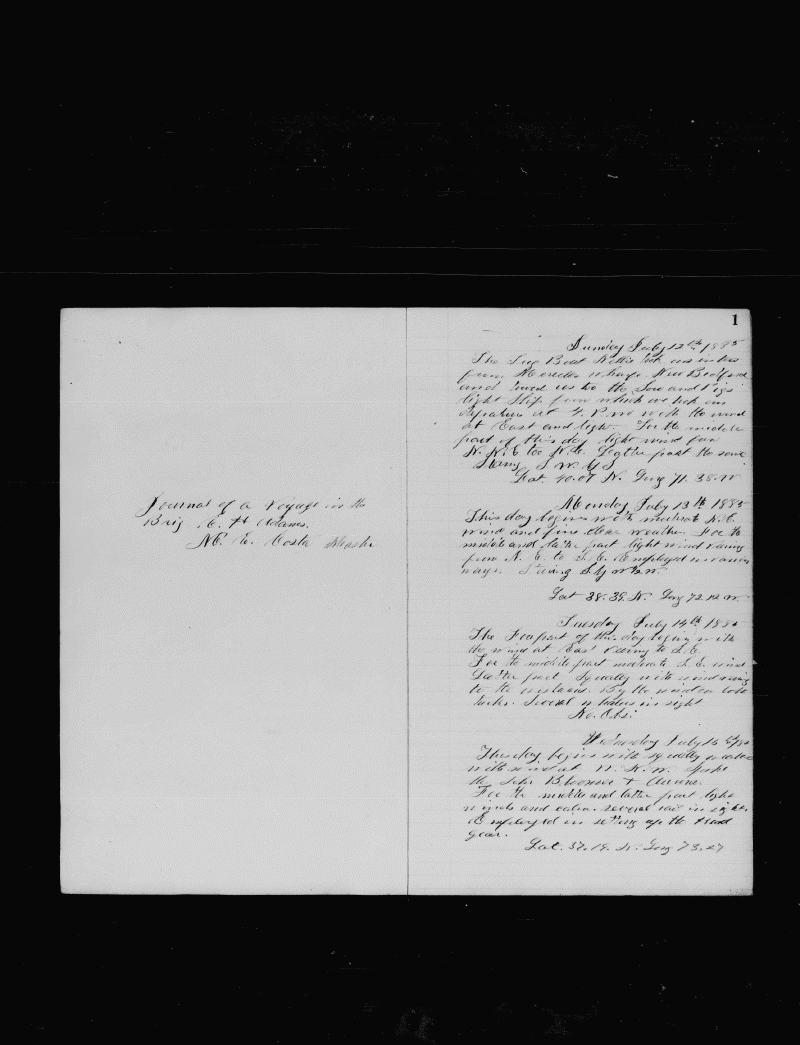 Journal of a Voyage in the
Brig E. H. Adams.
M. E. Costa Master
1
Sunday July 12th 1885
The Tug Boat Nettie took us in tow
from Merrills wharf New Bedford
and towed us too the Sow and Pigs
light Ship from which we took our
departure at 4. P.M. with the wind
at East and light. For the middle
part of this day light wind from
N.N.E too N.E. Latter part the same
Stering S W by S
Lat. 40.07 N. Long 71.38. W
Monday July 13th 1885
This day begins with moderate N.E.
wind and fine clear weather. For the
middle and latter part light wind
from N. E. to S. E. Employed in various
ways. Stering
Lat 38.39. N. Long 72.12 W.
Tuesday July 14th 1885
The Forepart of this day begins with
the wind at East to S.E.
For the middle part moderate S.E. wind
Latter part Squally with wind
to the By the wind on both
tacks. Several in sight
No. Obs.
Wednesday July 15th 1885
This day begins with squally weather
with wind at W. N. W. Spoke
the Schr
For the middle and latter part light
winds and calm. Several sail in sight.
Employed in setting up the
gear.
Lat. 37.19. N. Long 73.27